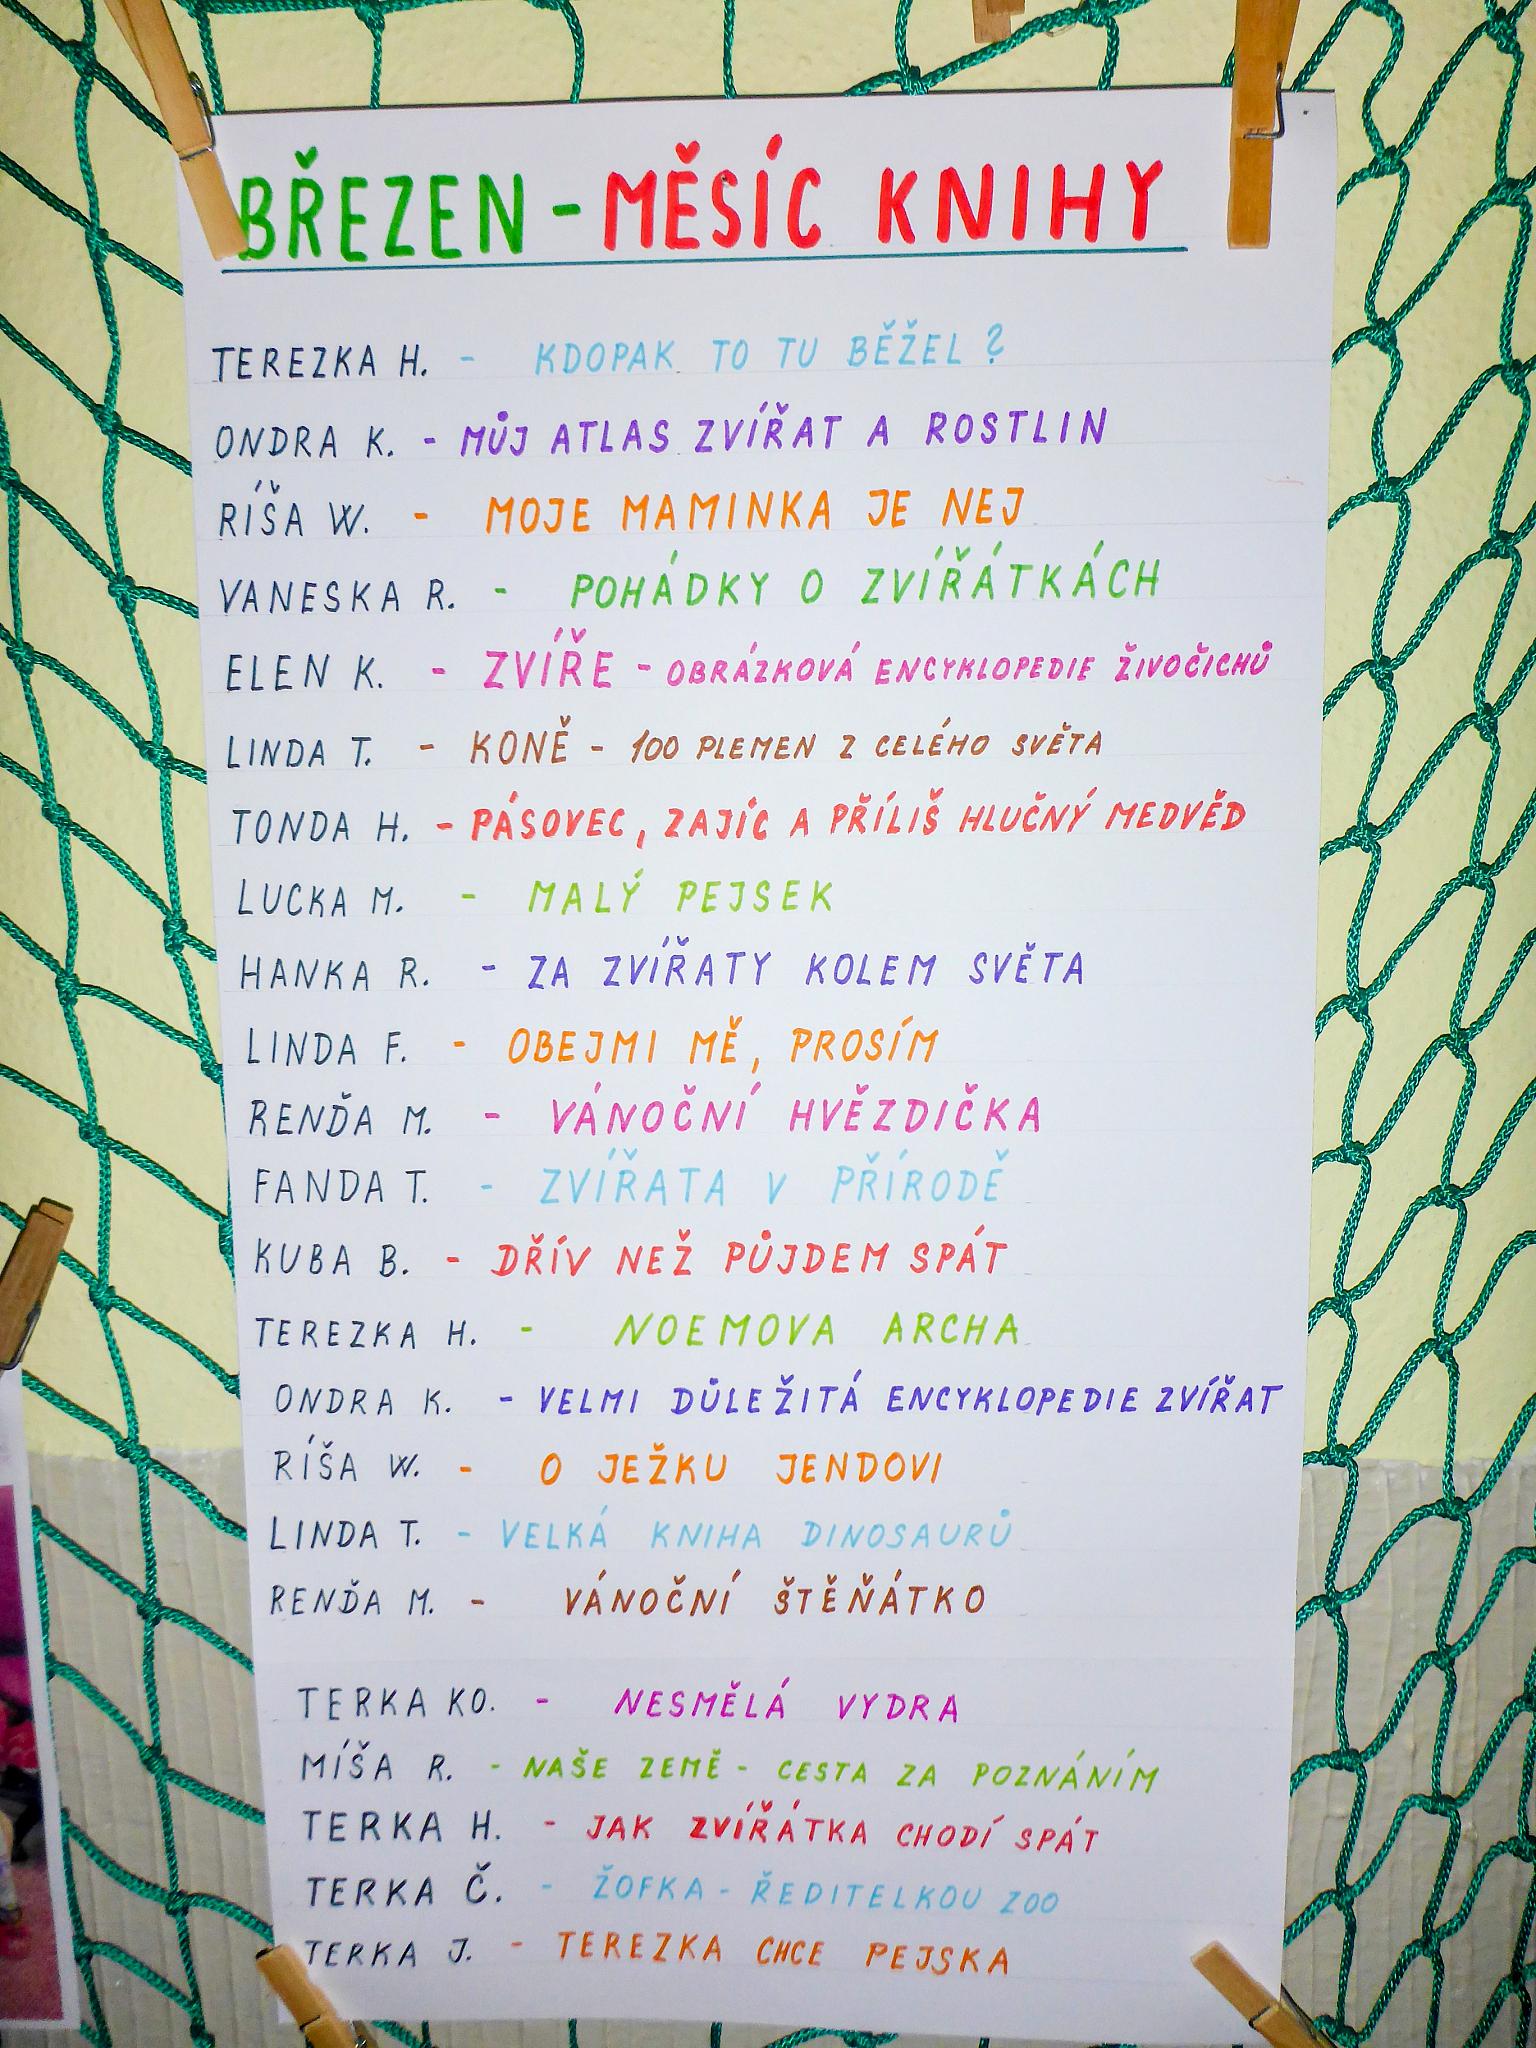 BŘEZEN - MĚSÍC KNIHY
TEREZKA H. - KDOPAK TO TU BĚŽEL ?
ONDRA K. - MŮJ ATLAS ZVÍŘAT A ROSTLIN
RÍŠA W. - MOJE MAMINKA JE NEJ
VANESKA R. - POHÁDKY O ZVÍŘÁTKÁCH
ELEN K. - ZVÍŘE - OBRÁZKOVÁ ENCYKLOPEDIE ŽIVOČICHŮ
LINDA T. - KONĚ - 100 PLEMEN Z CELÉHO SVĚTA
TONDA H. - PÁSOVEC, ZAJÍC A PŘÍLIŠ HLUČNÝ MEDVĚD
LUCKA M. - MALÝ PEJSEK
HANKA R. - ZA ZVÍŘATY KOLEM SVĚTA
LINDA F. - OBEJMI MĚ, PROSÍM
RENĎA M. - VÁNOČNÍ HVĚZDIČKA
FANDA T. - ZVÍŘATA V PŘÍRODĚ
KUBA B. - DŘÍV NEŽ PŮJDEM SPÁT
TEREZKA H. - NOEMOVA ARCHA
ONDRA K. - VELMI DŮLEŽITÁ ENCYKLOPEDIE ZVÍŘAT
RÍŠA W. - O JEŽKU JENDOVI
LINDA T. - VELKÁ KNIHA DINOSAURŮ
RENĎA M. - VÁNOČNÍ ŠTĚŇÁTKO
TERKA KO. - NESMĚLÁ VYDRA
MÍŠA R. - NAŠE ZEMĚ - CESTA ZA POZNÁNÍM
TERKA H. - JAK ZVÍŘÁTKA CHODÍ SPÁT
TERKA Č. - ŽOFKA - ŘEDITELKOU ZOO
TERKA J. - TEREZKA CHCE PEJSKA